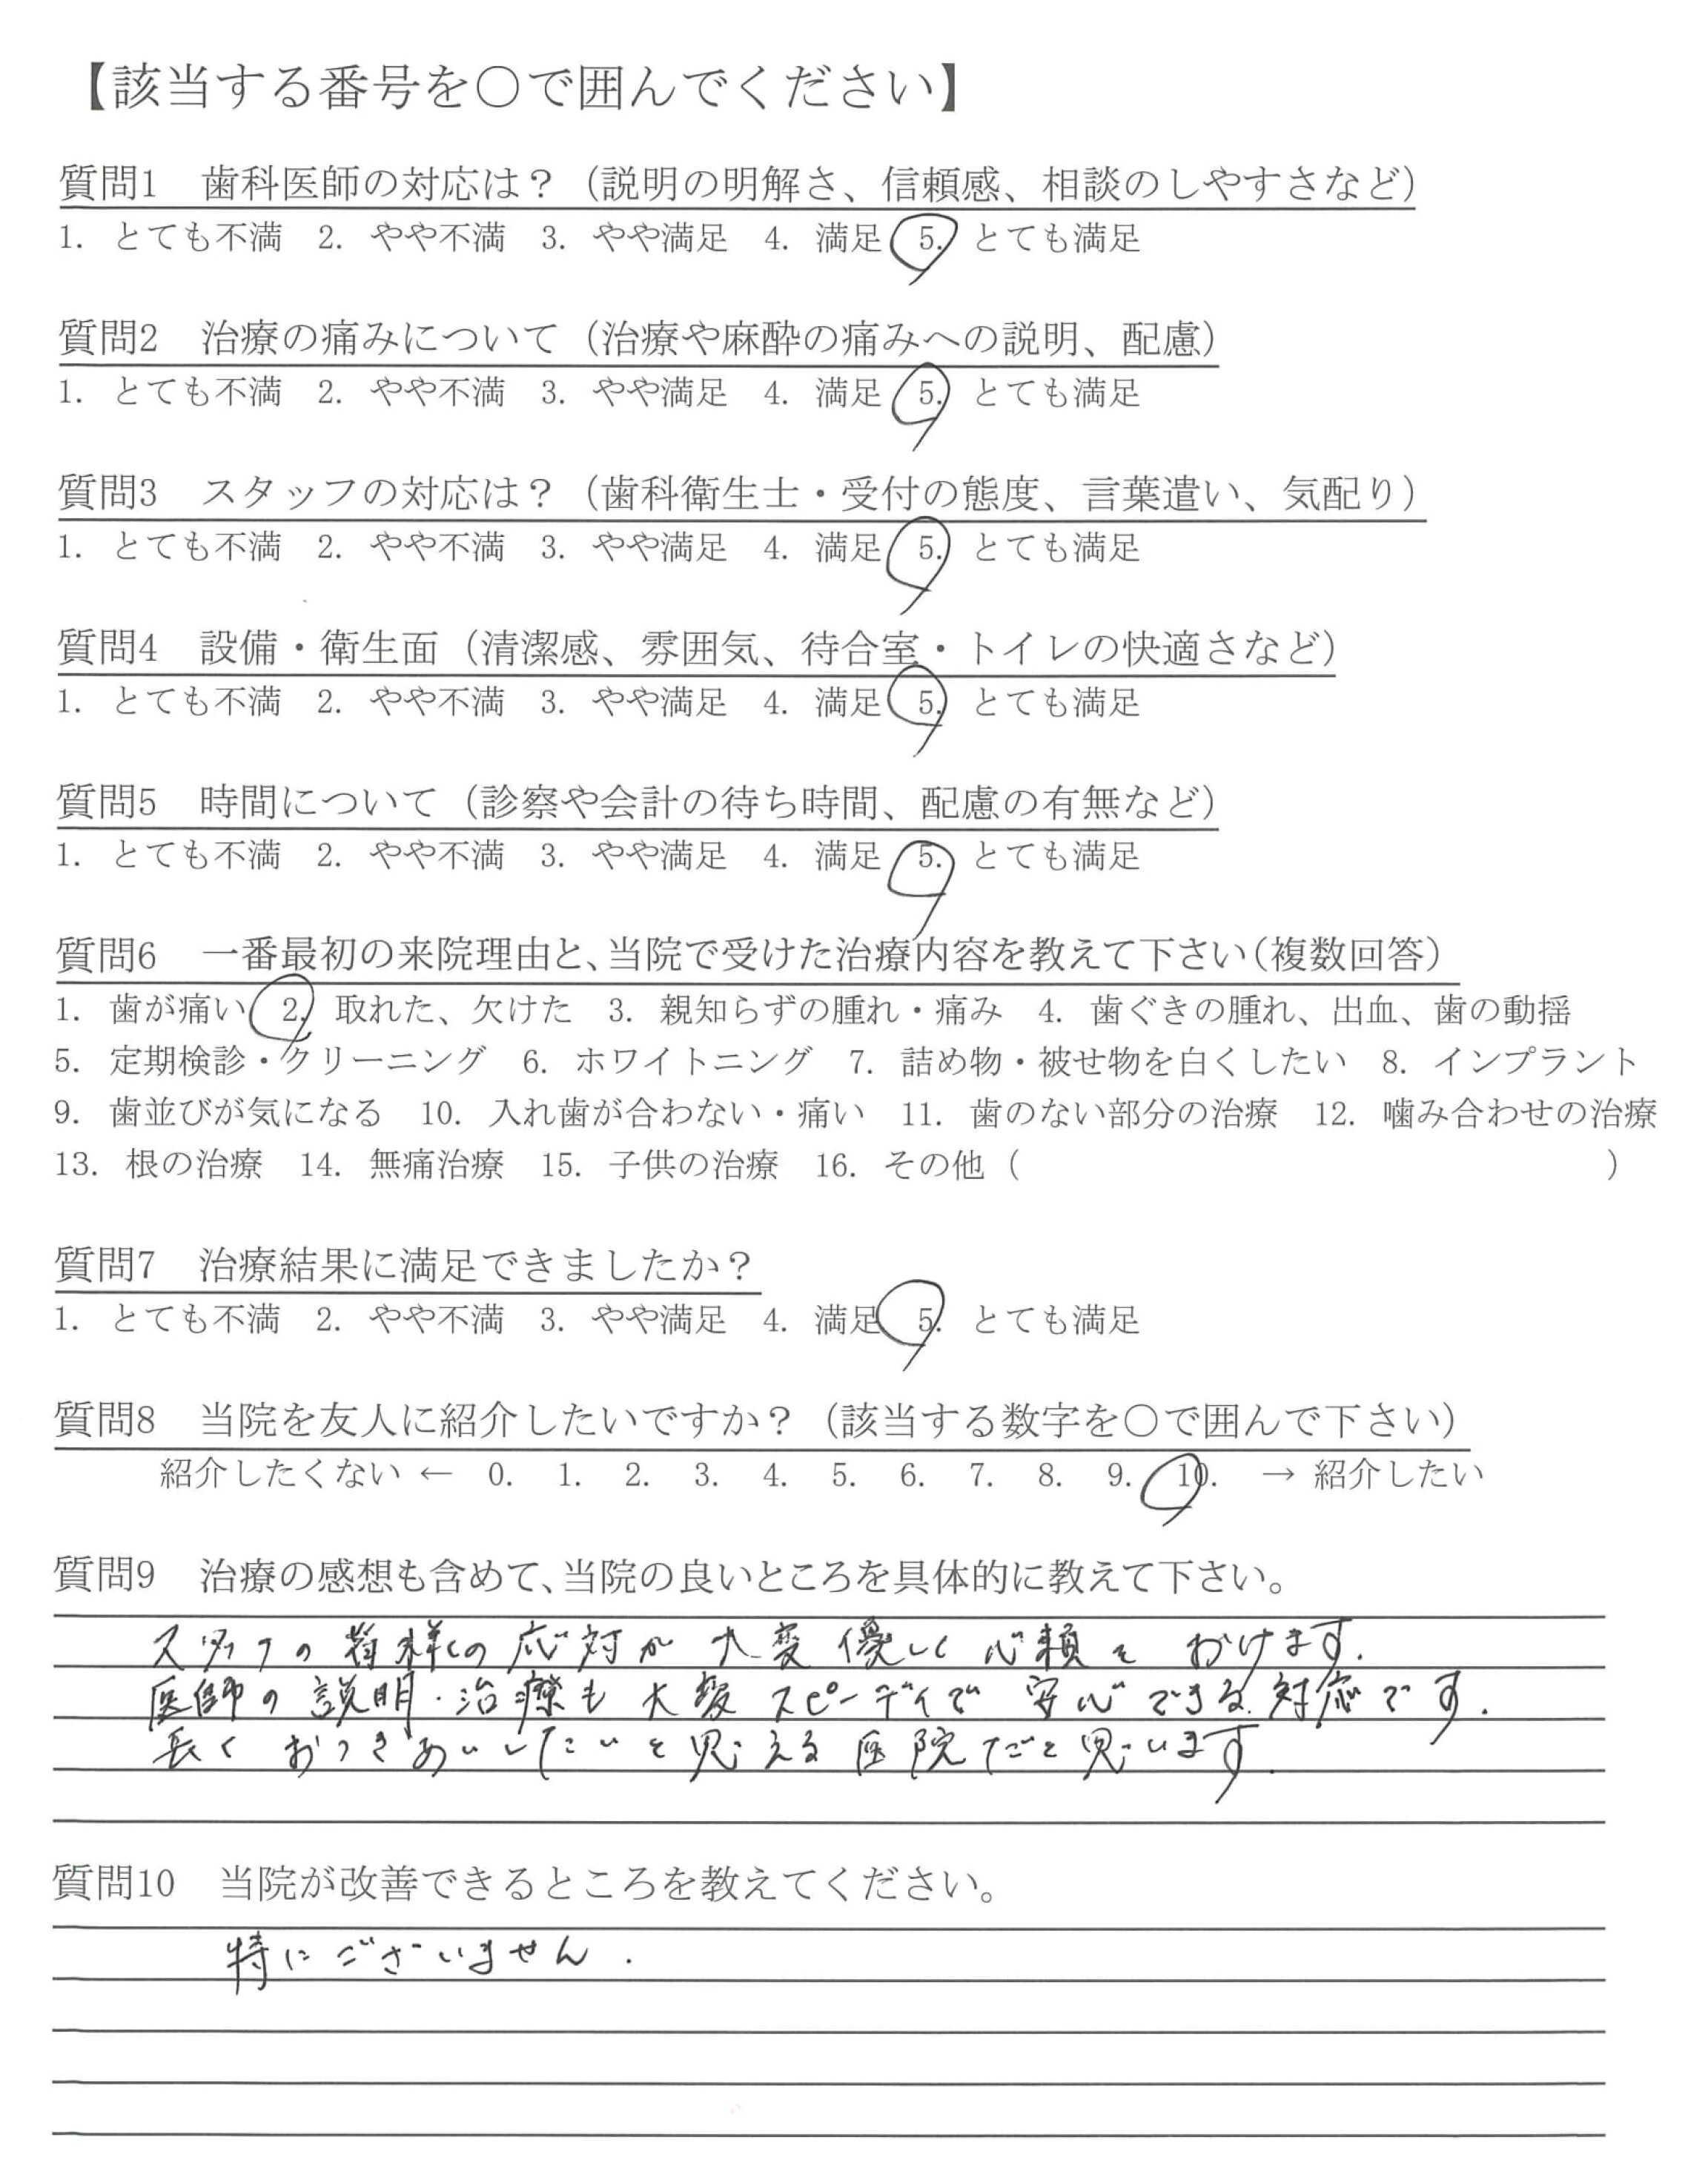 【該当する番号を○で囲んでください】
質問1 歯科医師の対応は？（説明の明解さ、信頼感、相談のしやすさなど）
1. とても不満 2. やや不満 3. やや満足 4. 満足 5. とても満足
質問2 治療の痛みについて（治療や麻酔の痛みへの説明、配慮）
1. とても不満 2. やや不満 3. やや満足 4. 満足 5. とても満足
質問3 スタッフの対応は？（歯科衛生士・受付の態度、言葉遣い、気配り）
1. とても不満 2. やや不満 3. やや満足 4. 満足 5. とても満足
質問4 設備・衛生面（清潔感、雰囲気、待合室・トイレの快適さなど）
1. とても不満 2. やや不満 3. やや満足 4. 満足 5. とても満足
質問5 時間について（診察や会計の待ち時間、配慮の有無など）
1. とても不満 2. やや不満 3. やや満足 4. 満足 5. とても満足
質問6 一番最初の来院理由と、当院で受けた治療内容を教えて下さい（複数回答）
1. 歯が痛い 2. 取れた、欠けた 3. 親知らずの腫れ・痛み 4. 歯ぐきの腫れ、出血、歯の動揺
5. 定期検診・クリーニング 6. ホワイトニング 7. 詰め物・被せ物を白くしたい 8. インプラント
9. 歯並びが気になる 10. 入れ歯が合わない・痛い 11. 歯のない部分の治療 12. 噛み合わせの治療
13. 根の治療 14. 無痛治療 15. 子供の治療 16. その他（ ）
質問7 治療結果に満足できましたか？
1. とても不満 2. やや不満 3. やや満足 4. 満足 5. とても満足
質問8 当院を友人に紹介したいですか？（該当する数字を○で囲んで下さい）
紹介したくない ← 0. 1. 2. 3. 4. 5. 6. 7. 8. 9. 10. → 紹介したい
質問9 治療の感想も含めて、当院の良いところを具体的に教えて下さい。
スタッフの皆様の応対が大変優しく心頼をおけます.
医師の説明・治療も大変スピーディで安心できる対応です.
長くおつきあいしたいと思える医院だと思います.
質問10 当院が改善できるところを教えてください。
特にございません.